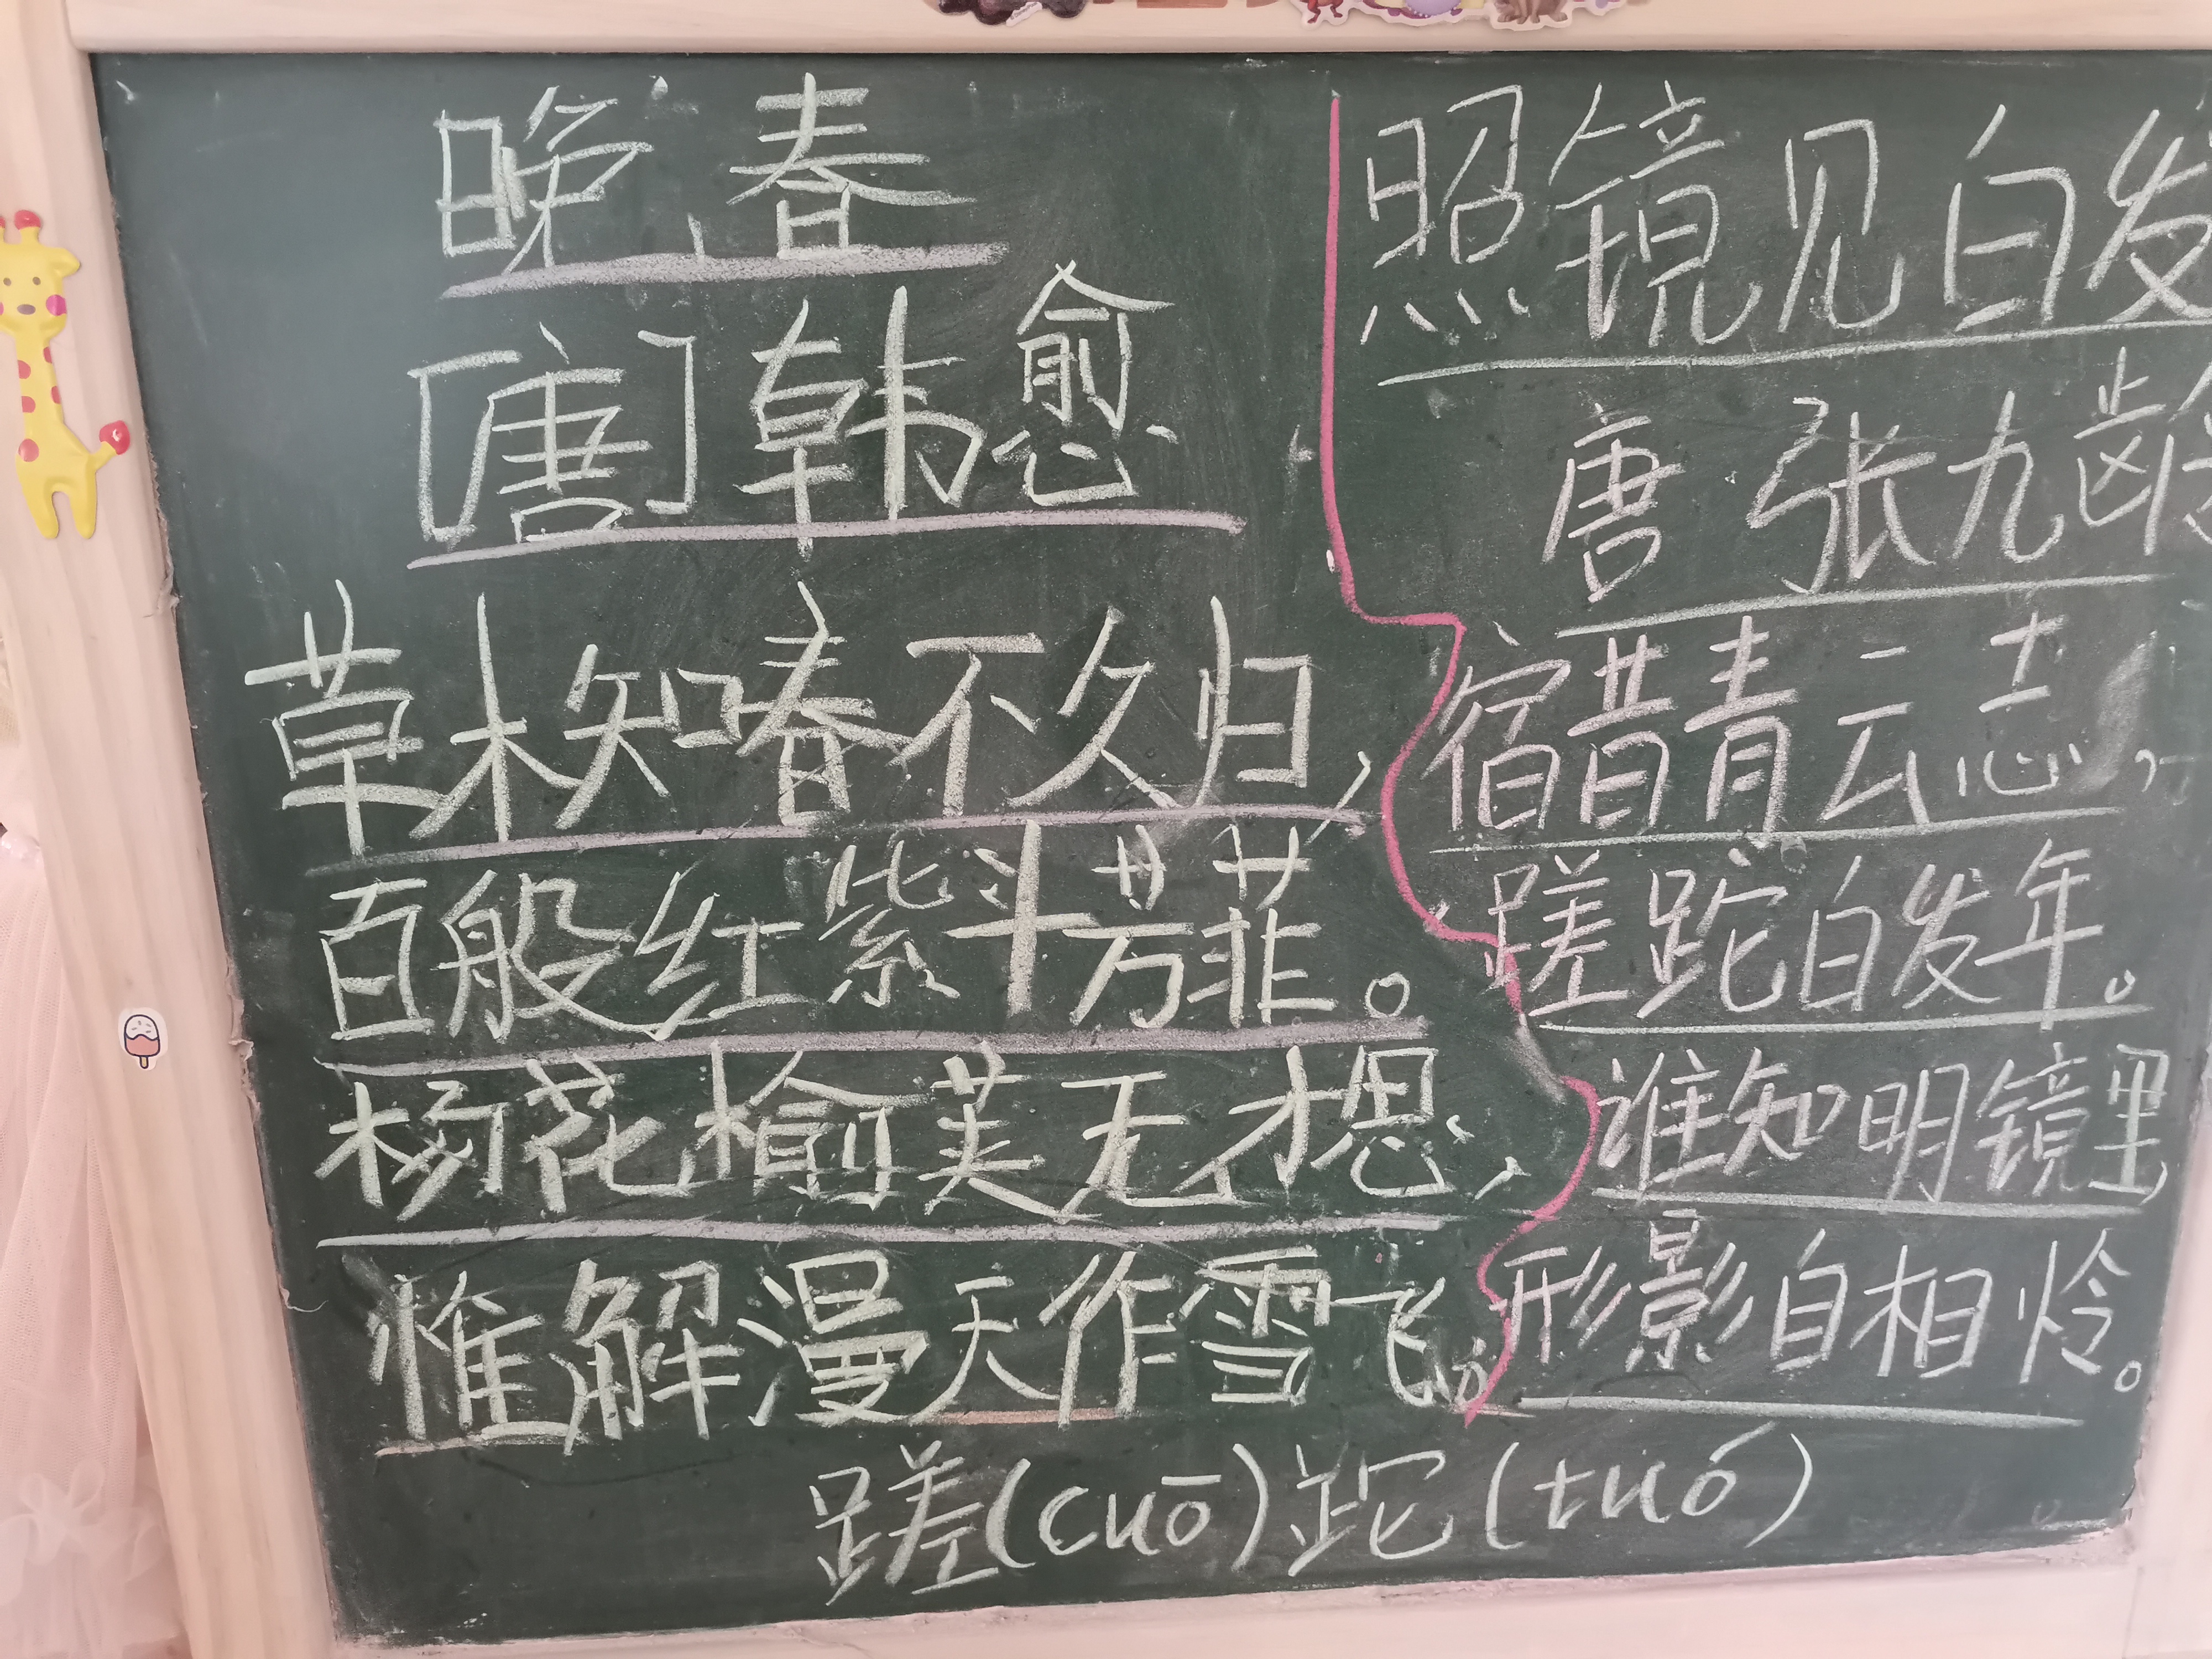 晚春
[唐]韩愈
草木知春不久归,
百般红紫斗芳菲。
杨花榆荚无才思,
惟解漫天作雪飞。
照镜见白发
唐 张九龄
宿昔青云志,
蹉跎白发年。
谁知明镜里,
形影自相怜。
蹉(cuō)跎(tuó)